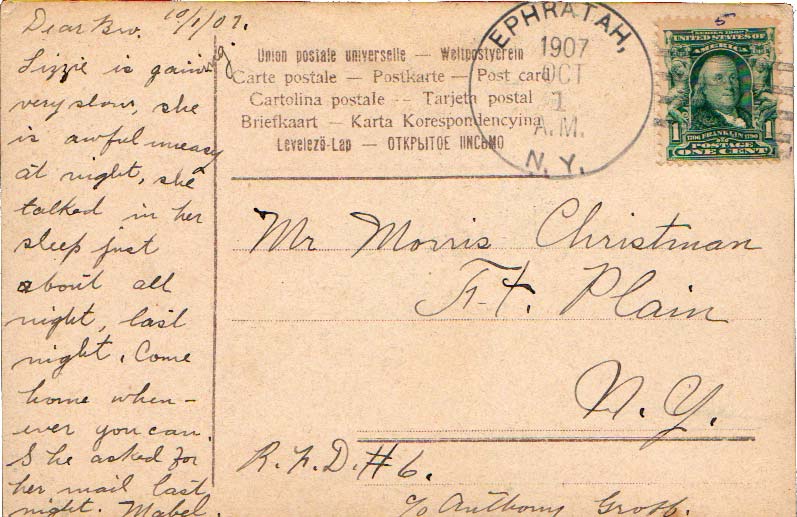 Dear Bro. 10/1/07.
Lizzie is gaining
very slow, she
is awful uneasy
at night, she
talked in her
sleep just
about all
night, last
night. Come
home when-
ever you can.
She asked for
her mail last
night. Mabel.
Union postale universelle — Weltpostverein
Carte postale — Postkarte — Post card
Cartolina postale -- Tarjeta postal
Briefkaart — Karta Korespondencyjna
Levelező-Lap — ОТКРЫТОЕ ПИСЬМО
EPHRATAH,
1907
OCT
1
A.M.
N.Y.
5
SERIES 1902
UNITED STATES OF
AMERICA
1706 FRANKLIN 1790
1
POSTAGE
ONE CENT
Mr Morris Christman
Ft. Plain
N.Y.
R.F.D. #6.
c/o Anthony Groff.